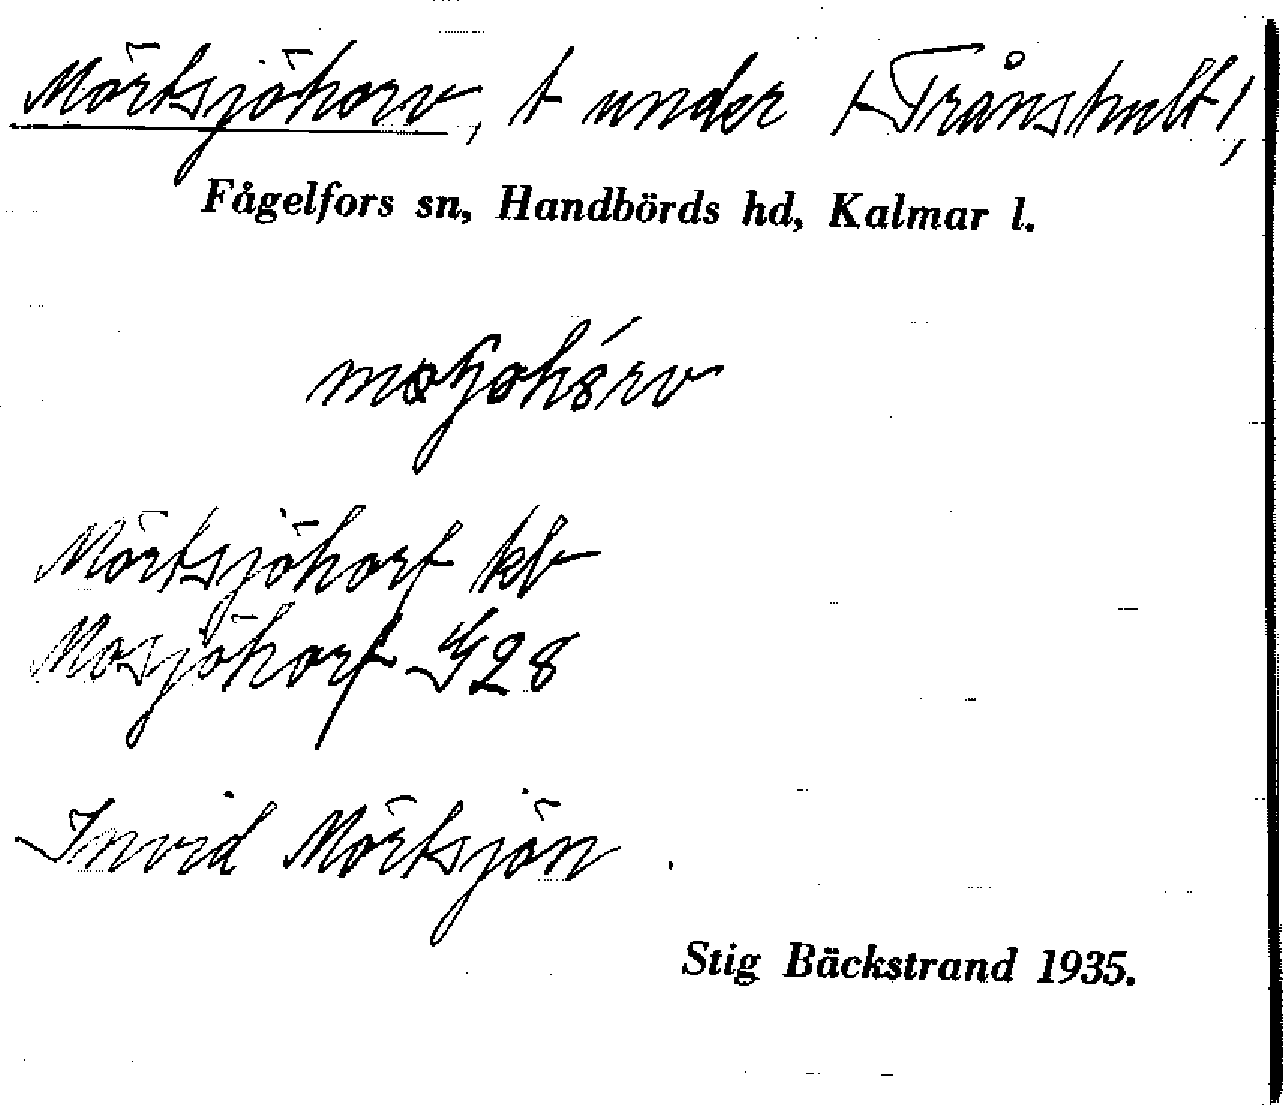 Mörtsjöhorv, t under /Trånshult/,
Fågelfors sn, Handbörds hd, Kalmar l.
Mörtsjöhorf kb
Mosjöhorf G28
Invid Mörtsjön.
Stig Bäckstrand 1935.